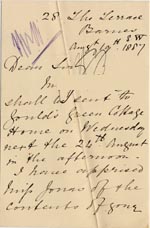 28 The Terrace
Barnes S.W
Augst 1887
Dear Sir
In
shall be sent to
Gould's Green Cottage
Home on Wednesday
next the 24th August
in the afternoon.
I have apprised
Miss Jonas of the
contents of your